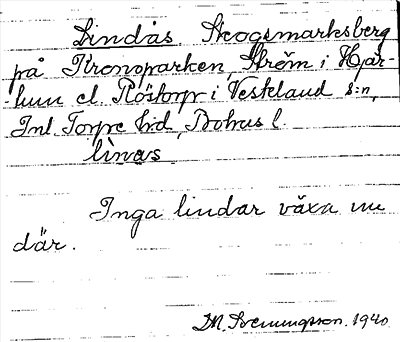 Lindås. Skogsmarksberg
på Kronoparken, Ström i Hjär-
-tum el. Röstorp i Vestland s:n,
Inl. Torpe hd, Bohus l.
linas
Inga lindar växa nu
där.
M. Henningsson. 1940.